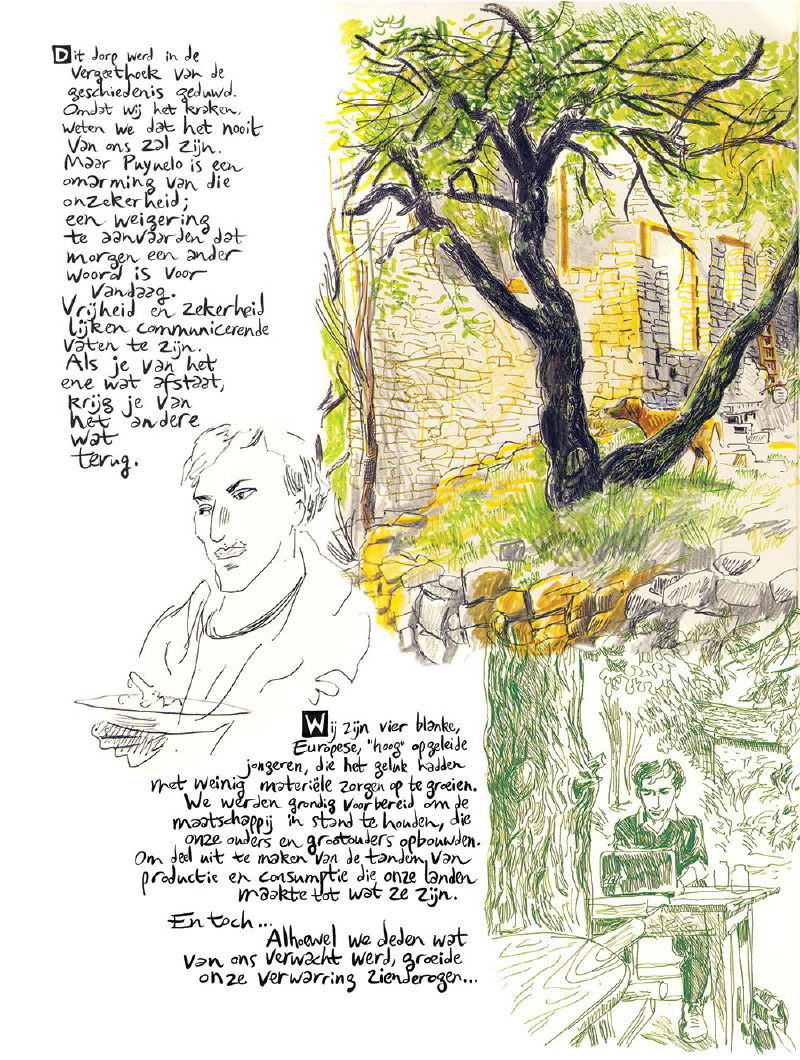 Dit dorp werd in de
vergeethoek van de
geschiedenis geduwd.
Omdat wij het kraken,
weten we dat het nooit
van ons zal zijn.
Maar Puyuelo is een
omarming van die
onzekerheid;
een weigering
te aanvaarden dat
morgen een ander
woord is voor
vandaag.
Vrijheid en zekerheid
lijken communicerende
vaten te zijn.
Als je van het
ene wat afstaat,
krijg je van
het andere
wat
terug.
Wij zijn vier blanke,
Europese, "hoog" opgeleide
jongeren, die het geluk hadden
met weinig materiële zorgen op te groeien.
We werden grondig voorbereid om de
maatschappij in stand te houden, die
onze ouders en grootouders opbouwden.
Om deel uit te maken van de tandem van
productie en consumptie die onze landen
maakte tot wat ze zijn.
En toch...
Alhoewel we deden wat
van ons verwacht werd, groeide
onze verwarring zienderogen...